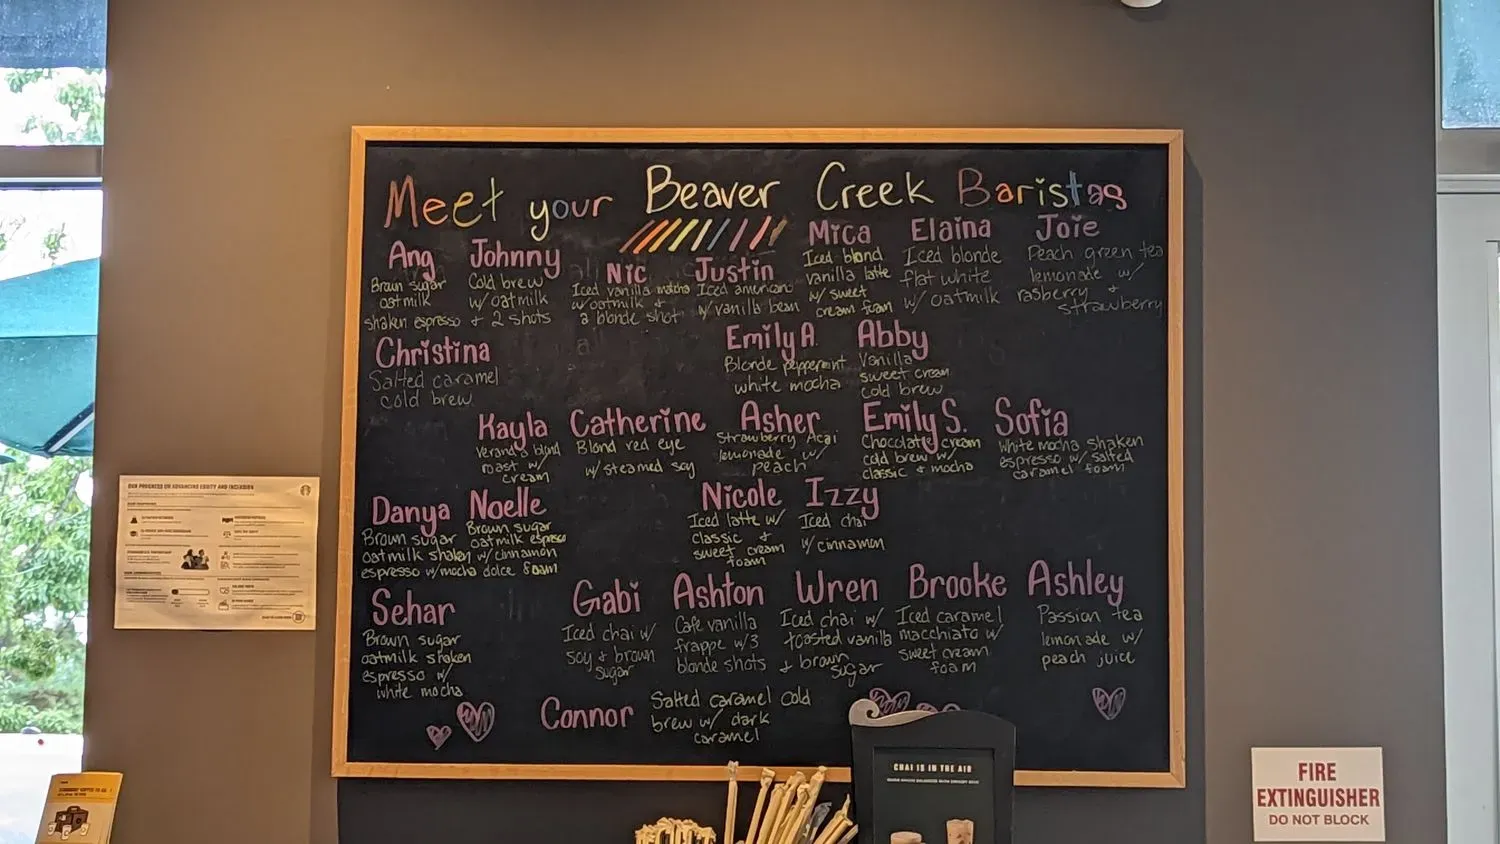 Meet your Beaver Creek Baristas
Ang
Brown sugar
oatmilk
shaken espresso
Johnny
Cold brew
w/ oatmilk
+ 2 shots
Nic
Iced vanilla matcha
w/ oatmilk +
a blonde shot
Justin
Iced americano
w/ vanilla bean
Mica
Iced blond
vanilla latte
w/ sweet
cream foam
Elaina
Iced blonde
flat white
w/ oatmilk
Joie
Peach green tea
lemonade w/
rasberry +
strawberry
Christina
Salted caramel
cold brew
Emily A.
Blonde peppermint
white mocha
Abby
Vanilla
sweet cream
cold brew
Kayla
Verand a blond
roast w/
cream
Catherine
Blond red eye
w/ steamed soy
Asher
Strawberry Acai
lemonade w/
peach
Emily S.
Chocolate cream
cold brew w/
classic + mocha
Sofia
White mocha shaken
espresso w/ salted
caramel foam
Danya
Brown sugar
oatmilk shaken
espresso w/ mocha
Noelle
Brown sugar
oatmilk espresso
w/ cinnamon
dolce foam
Nicole
Iced latte w/
classic +
sweet cream
foam
Izzy
Iced chai
w/ cinnamon
Sehar
Brown sugar
oatmilk shaken
espresso w/
white mocha
Gabi
Iced chai w/
soy + brown
sugar
Ashton
Cafe vanilla
frappe w/ 3
blonde shots
Wren
Iced chai w/
toasted vanilla
+ brown
sugar
Brooke
Iced caramel
macchiato w/
sweet cream
foam
Ashley
Passion tea
lemonade w/
peach juice
Connor
Salted caramel cold
brew w/ dark
caramel
OUR PROGRESS ON ADVANCING EQUITY AND INCLUSION
CHAI IS IN THE AIR
FIRE
EXTINGUISHER
DO NOT BLOCK